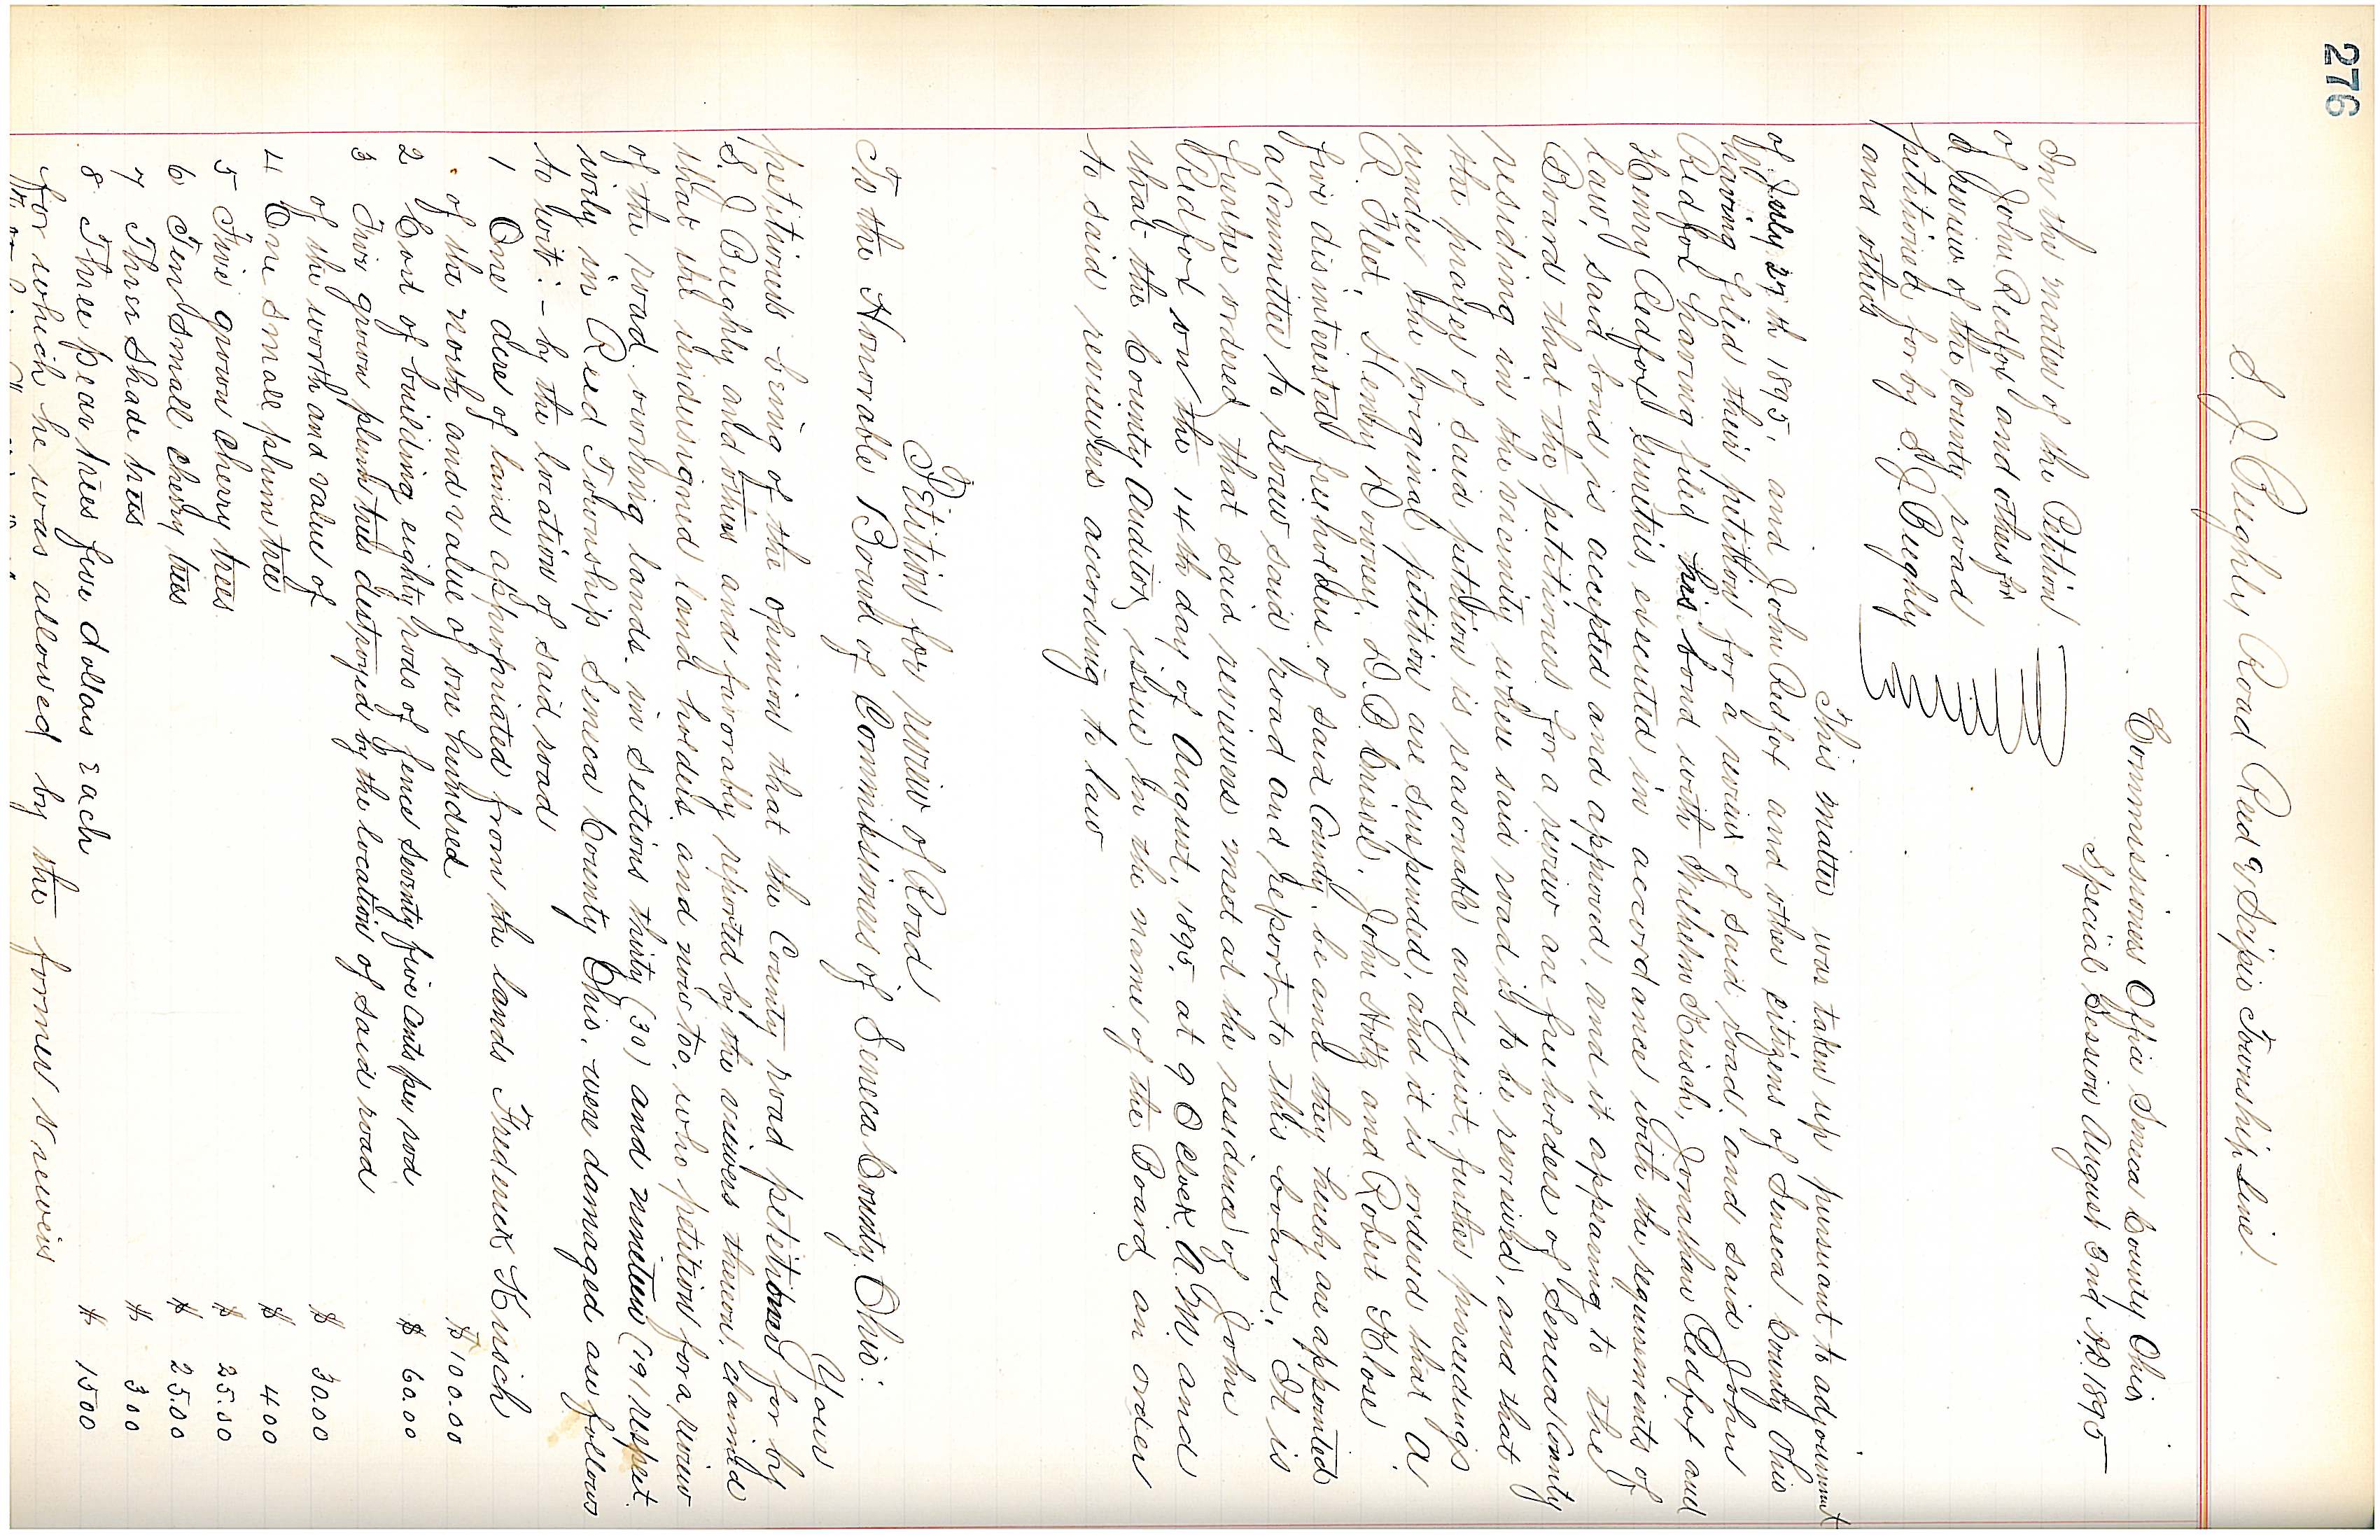 276
S. J. Beighly Road Reed & Scipio Township Line.
Commissioners Office Seneca County Ohio,
Special Session August 2nd A.D. 1895
In the matter of the Petition
of John Redfox and others for
a review of the County road
petitioned for by S. J. Beighly
and others
This matter was taken up pursuant to adjournment
of July 27th 1895, and John Redfox and other citizens of Seneca County Ohio
having filed their petition for a review of said road, and said John
Redfox having filed his bond with Wilhelm Kusich, Jonathan Redfox and
Henry Redfox sureties, executed in accordance with the requirements of
law, said bond is accepted and approved, and it appearing to the
Board that the petitioners for a review are freeholders of Seneca County
residing in the vicinity where said road is to be reviewed, and that
the prayer of said petition is reasonable and just, further proceedings
under the original petition are suspended, and it is ordered that A
R. Fleet, Henry Downey, D. B. Crissel, John Holtz and Robert Klose
five disinterested freeholders of said County, be and they hereby are appointed
a Committee to review said road and report to this board, It is
further ordered that said reviewers meet at the residence of John
Redfox on the 14th day of August, 1895, at 9 O clock A.M. and
that the County Auditor issue in the name of the Board an order
to said reviewers according to law
Petition for review of Road
To the Honorable Board of Commissioners of Seneca County, Ohio:
Your
petitioners being of the opinion that the County road petitioned for by
S. J. Beighly and others and favorably reported by the viewers thereon, claimed
that the undersigned land holders and now too, who petition for a review
of the road owning lands in sections thirty (30) and nineteen (19) respect
ively in Reed Township Seneca County Ohio, were damaged as follows
to wit: - by the location of said road
1 One acre of land appropriated from the lands Frederick Kusich
of the north and value of one hundred $100.00
2 Cost of building eighty rods of fence seventy five cents per rod $ 60.00
3 Two grown plum trees destroyed by the location of said road
of the worth and value of $ 30.00
4 One small plum tree $ 4 00
5 Five grown cherry trees $ 25.00
6 Ten small cherry trees $ 25.00
7 Three Shade trees $ 3 00
8 Three pear trees five dollars each $ 15 00
for which he was allowed by the former reviewers